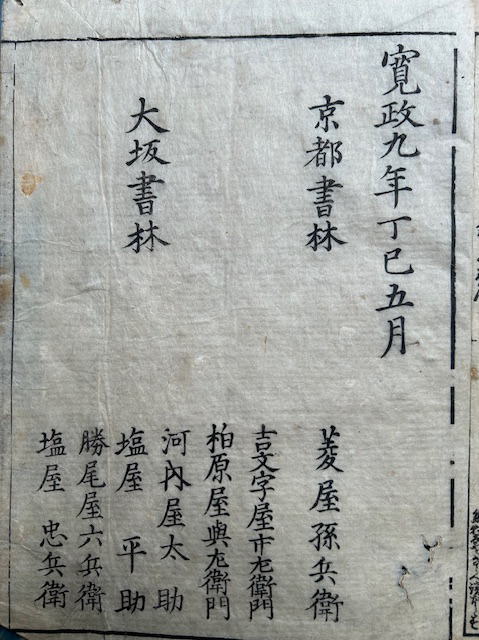 寛政九年丁巳五月
京都書林
菱屋孫兵衛
大坂書林
吉文字屋市左衛門
柏原屋與左衛門
河内屋太助
塩屋平助
勝尾屋六兵衛
塩屋忠兵衛